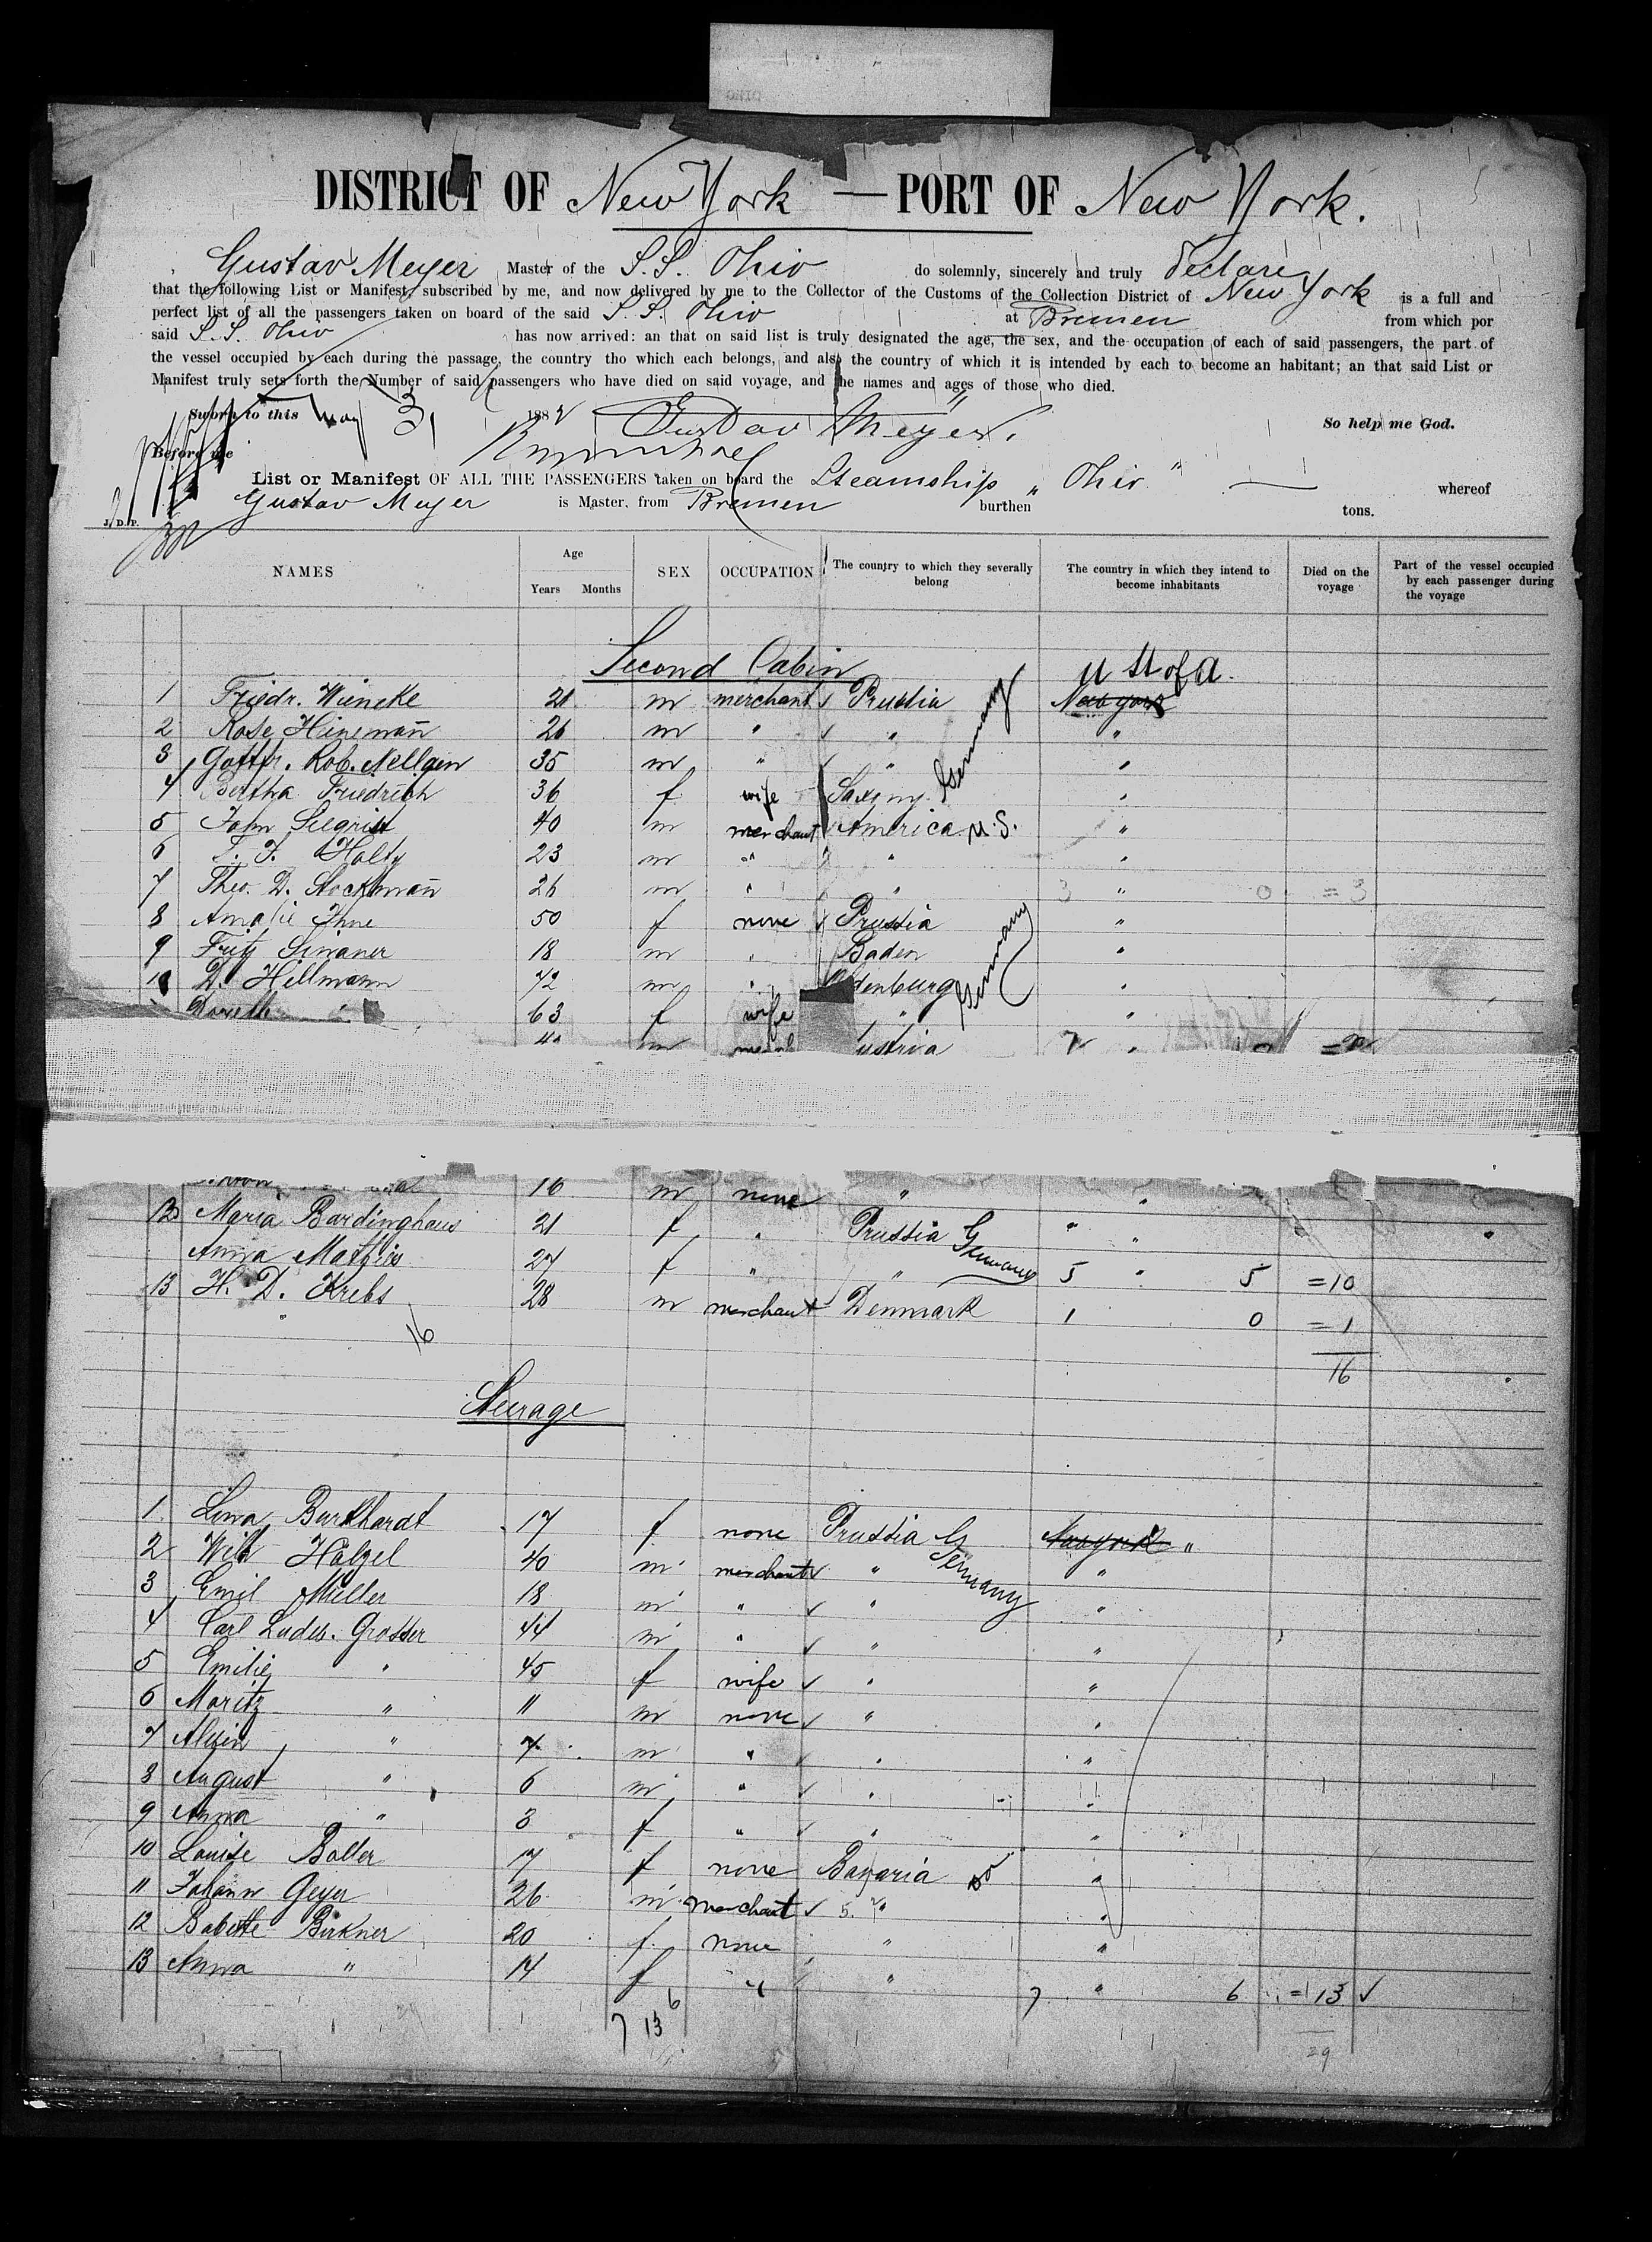 DISTRICT OF New York — PORT OF New York.
Gustav Meyer Master of the S.S. Ohio do solemnly, sincerely and truly declare
that the following List or Manifest, subscribed by me, and now delivered by me to the Collector of the Customs of the Collection District of New York is a full and
perfect list of all the passengers taken on board of the said S.S. Ohio at Bremen from which por
said S.S. Ohio has now arrived: an that on said list is truly designated the age, the sex, and the occupation of each of said passengers, the part of
the vessel occupied by each during the passage, the country tho which each belongs, and also the country of which it is intended by each to become an habitant; an that said List or
Manifest truly sets forth the Number of said passengers who have died on said voyage, and the names and ages of those who died.
Sworn to this May 31 1882 Gustav Meyer. So help me God.
Before me
List or Manifest OF ALL THE PASSENGERS taken on board the Steamship "Ohio" — whereof
Gustav Meyer is Master, from Bremen burthen tons.
J. D. P.
NAMES Age Years Months SEX OCCUPATION The country to which they severally belong The country in which they intend to become inhabitants Died on the voyage Part of the vessel occupied by each passenger during the voyage
Second Cabin U St of A.
1 Friedr. Wieneke 21 m merchant Prussia New York
2 Rose Heineman̅ 26 m " " "
3 Gottfr. Rob. Nellgen 35 m " " Germany "
4 Bertha Friedrich 36 f wife Saxony "
5 John Siegrist 40 m merchant America U.S. "
6 Holtz 23 m " " "
7 Theo. D. Stockman̅ 26 m " " 3 " 0 = 3
8 Amalie Ihne 50 f none Prussia "
9 Fritz 18 m " Baden Germany "
10 D. Hillmann 72 m " denburg "
63 f wife " "
m ustria "
16 m none " "
12 Maria Bardinghaus 21 f " Prussia Germany "
Anna Mathies 27 f " " 5 " 5 = 10
13 H. D. Krebs 28 m merchant Denmark 1 0 = 1
" 16 16
Steerage
1 Lina Burkhardt 17 f none Prussia Germany New York "
2 Wilh Hölzel 40 m merchant " "
3 Emil Müller 18 m " " "
4 Carl Ludw. Grosser 44 m " " "
5 Emilie " 45 f wife " "
6 Moritz " 11 m none " "
7 Alwin " 7 m " " "
8 August " 6 m " " "
9 Anna " 3 f " " "
10 Louise Boller 17 f none Bavaria do "
11 Johann Geyer 26 m merchant " "
12 Babette Birkner 20 f none " "
13 Anna " 14 f " " 7 " 6 = 13
7 13 6
29